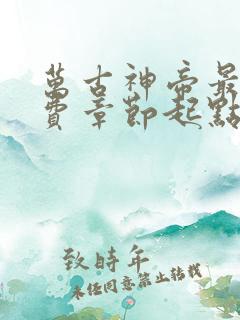 萬古神帝最
費章節起點
致時年
未經同意禁止轉載